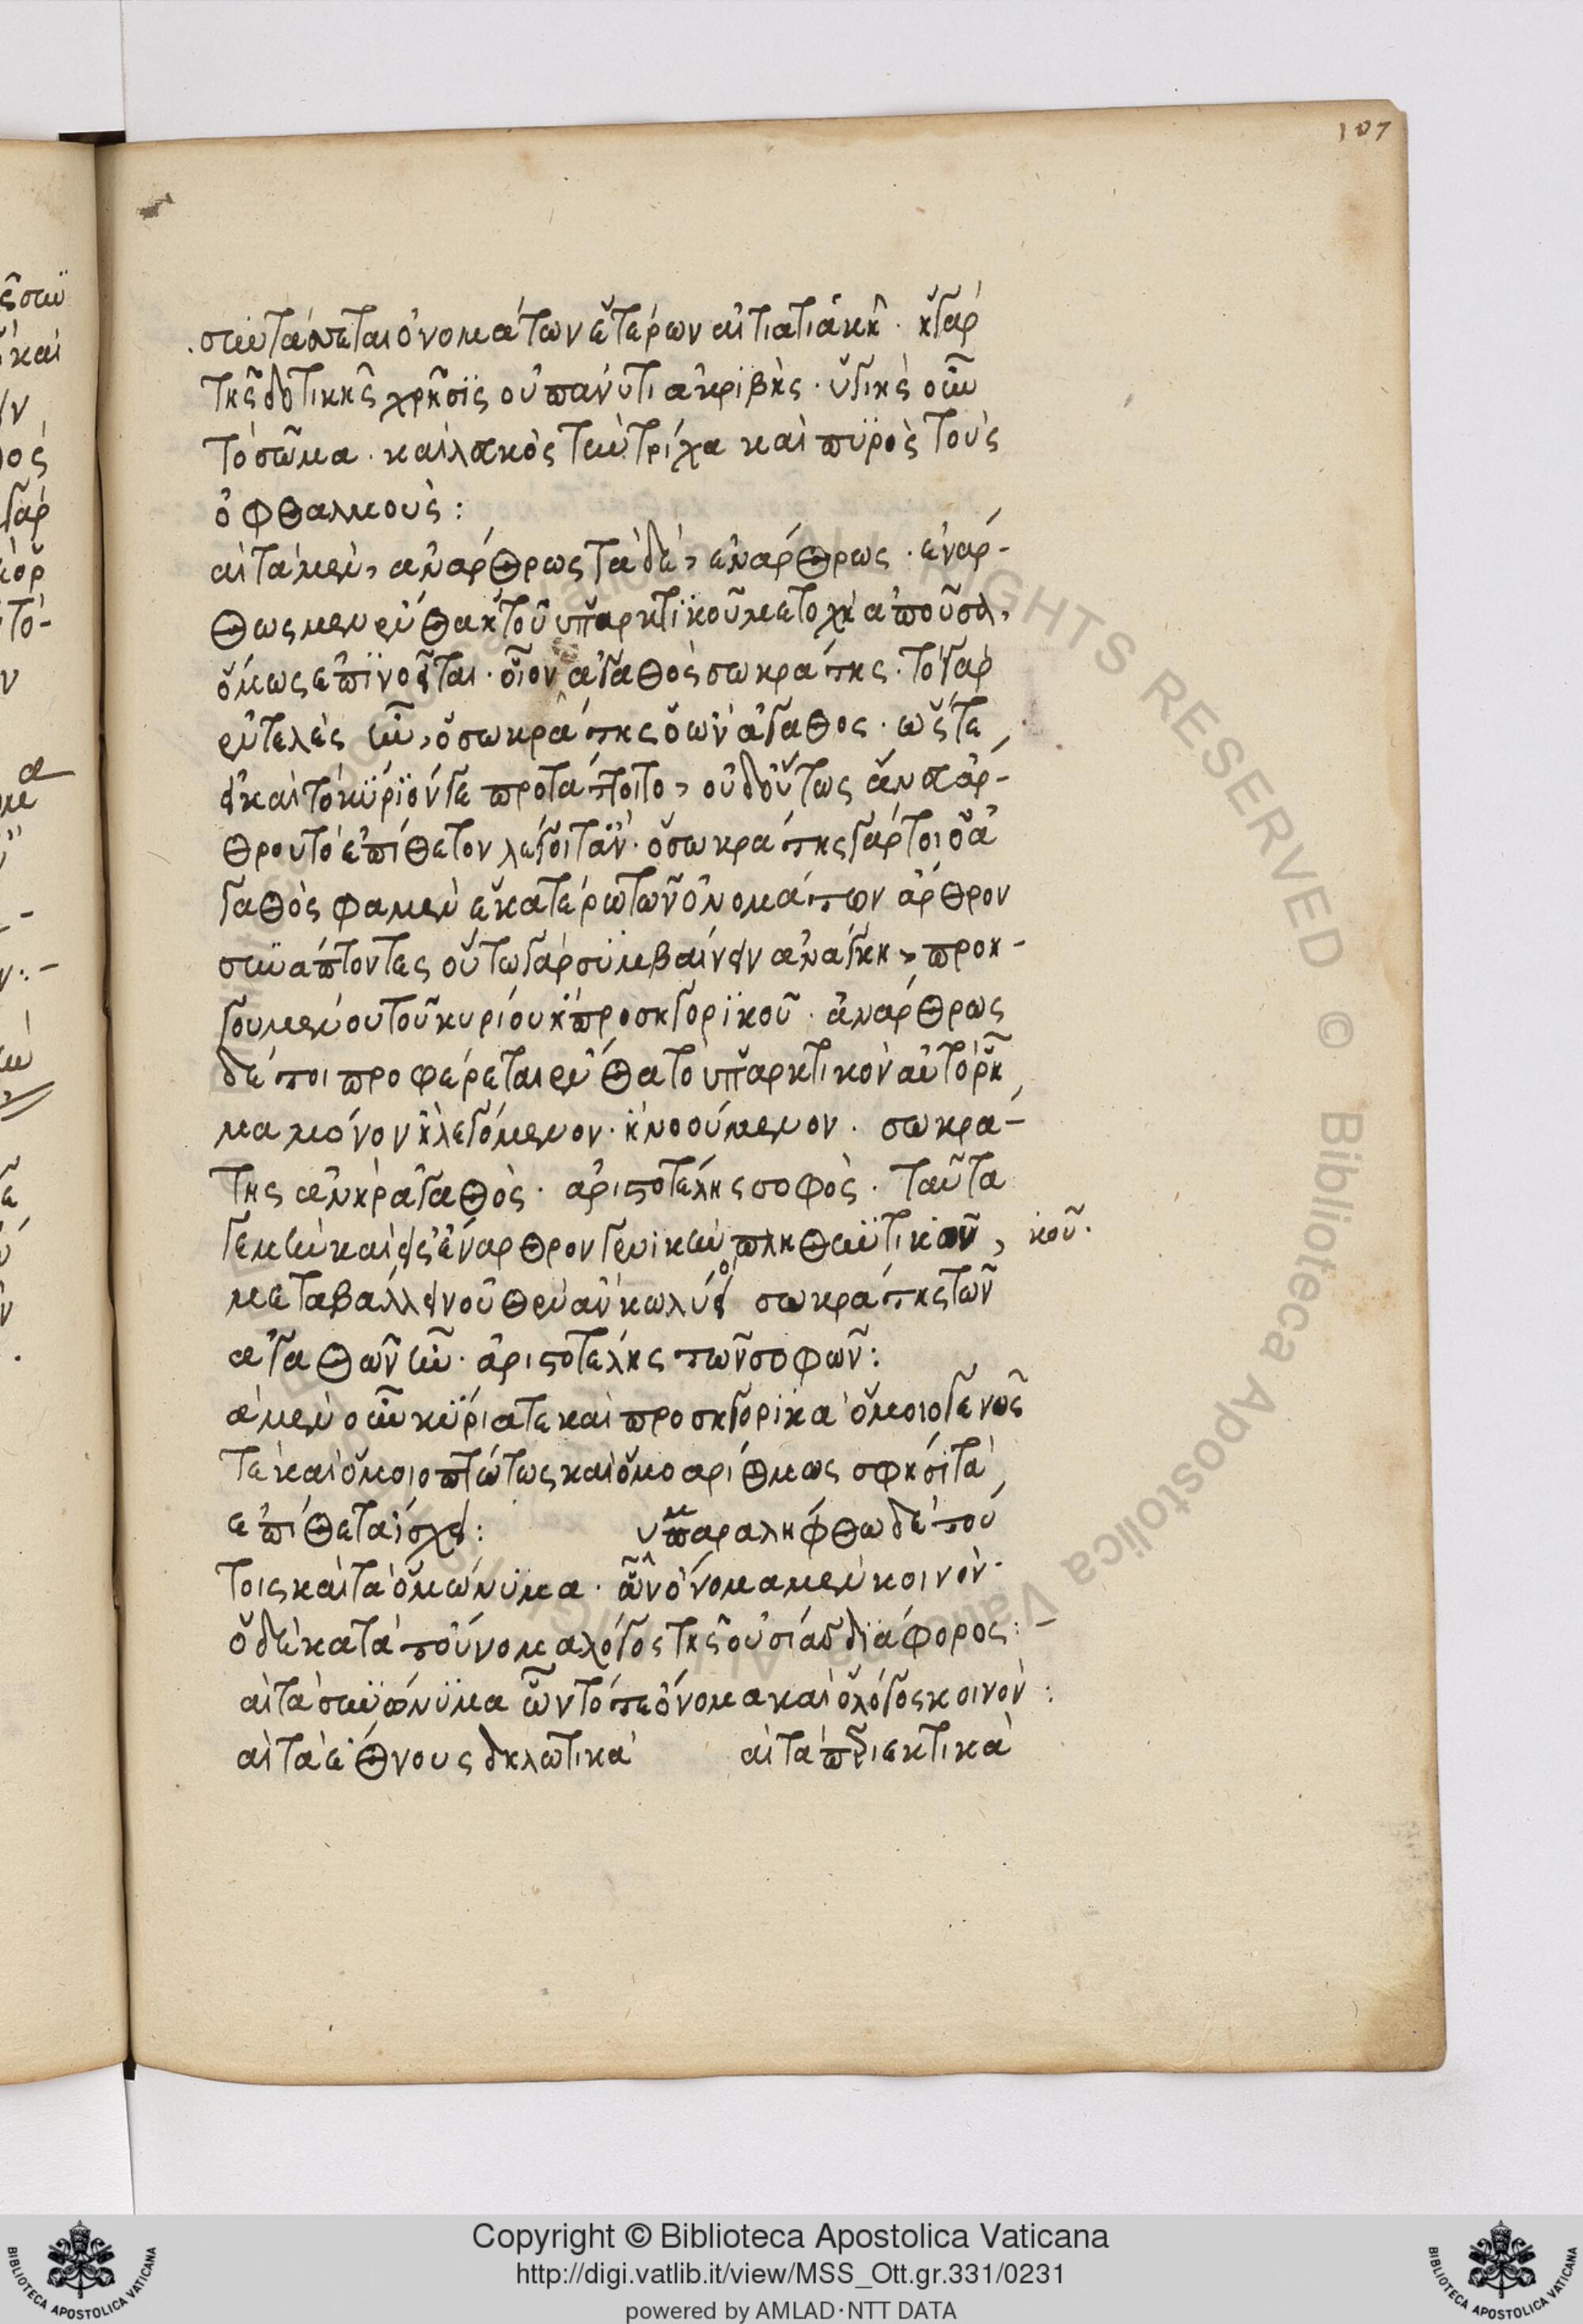 107
συντάττεται ὀνομάτων ἑτέρων αἰτιατικῇ · ἡ γὰρ
τῆς δοτικῆς χρῆσϊς οὐ πάνυ τι ἀκριβὴς · ὑγιὴς οὖν
τὸ σῶμα · καὶ λευκὸς τὴν τρίχα καὶ πυρὸς τοὺς
ὀφθαλμούς :
αἱ τὰ μὲν, ἀνάρθρως τὰ δὲ, ἐνάρθρως · ἐνάρ-
θως μὲν ἔνθα ἡ τοῦ ὑπαρκτϊκοῦ μετοχὴ ἀποῦσα,
ὅμως ἐπϊνοεῖται · οἷον ἀγαθὸς σωκράτης · τὸ γὰρ
ἐντελὲς ἦν, ὁ σωκράτης ὁ ὢν ἀγαθος · ὥστε
εἰ καὶ τὸ κύριόν γε προτάττοιτο, οὐδ οὕτως ἄναρ-
θρον τὸ ἐπίθετον λέγοιτ ἂν · ὁ σωκράτης γάρ τοι ὁ ἀ
γαθὸς φαμὲν ἑκατέρω τῶν ὀνομάτων ἄρθρον
συνάπτοντες οὕτω γὰρ συμβαίνειν ἀνάγκη, προη-
γουμένου τοῦ κυρίου ἢ προσηγορϊκοῦ · ἀνάρθρως
δέ τοι προφέρεται ἔνθα τὸ ὑπαρκτικὸν αὐτὸ ῥῆ
μα μόνον ἢ λεγόμενον · ἢ νοούμενον · σωκρά-
της ἀνὴρ ἀγαθὸς · ἀριστοτέλης σοφὸς · ταῦτα
γε μὴν καὶ εἰς ἔναρθρον γενικὴν πληθυντικοῦ, κοῦ ·
μεταβάλλειν οὐθὲν ἂν κωλύοι σωκράτης τῶν
ἀγαθῶν ἦν · ἀριστοτέλης τῶν σοφῶν :
ἃ μὲν οὖν κύρια τε καὶ προσηγορϊκὰ ὁμοιογενῶς
τε καὶ ὁμοιοπτώτως καὶ ὁμοαρίθμως σφήσι τὰ
ἐπίθετα ἴσχει : υμπαραλήφθω δὲ τού
τοις καὶ τὰ ὁμώνυμα · ὧν ὄνομα μὲν κοινὸν ·
ὁ δὲ κατὰ τοὔνομα λόγος τῆς οὐσίας διάφορος : -
αἱ τὰ συνώνυμα ὧν τό τε ὄνομα καὶ ὁ λόγος κοινὸν :
αἱ τὰ ἔθνους δηλωτικὰ αἱ τὰ περιεκτικὰ
Copyright © Biblioteca Apostolica Vaticana
http://digi.vatlib.it/view/MSS_Ott.gr.331/0231
powered by AMLAD·NTT DATA